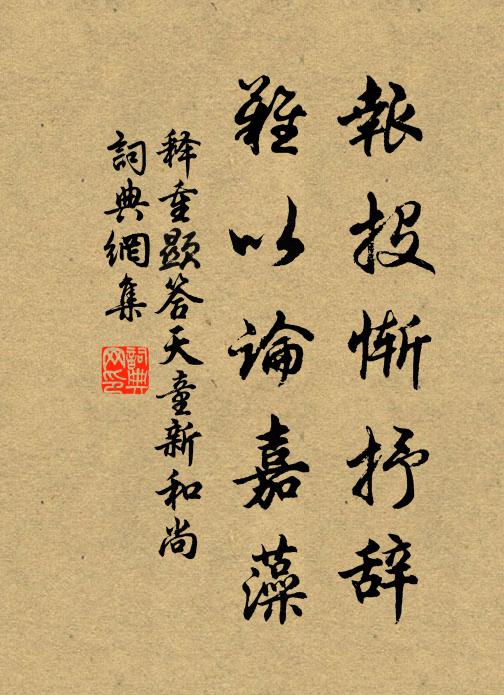 報投慚抒辞
難以論嘉藻
释重顯答天童新和尚
詞典網集
詞典网印